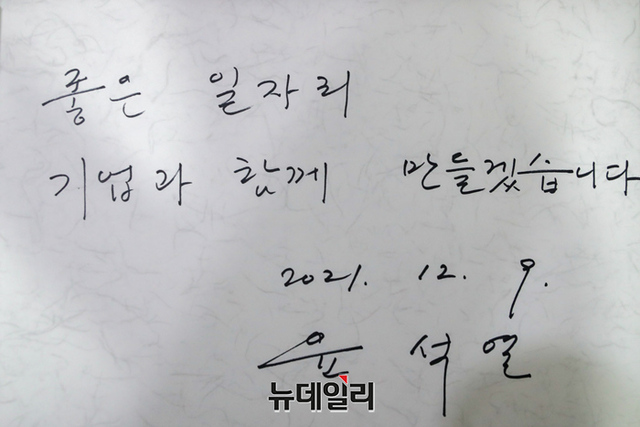 좋은 일자리
기업과 함께 만들겠습니다
2021. 12. 9.
윤석열
뉴데일리